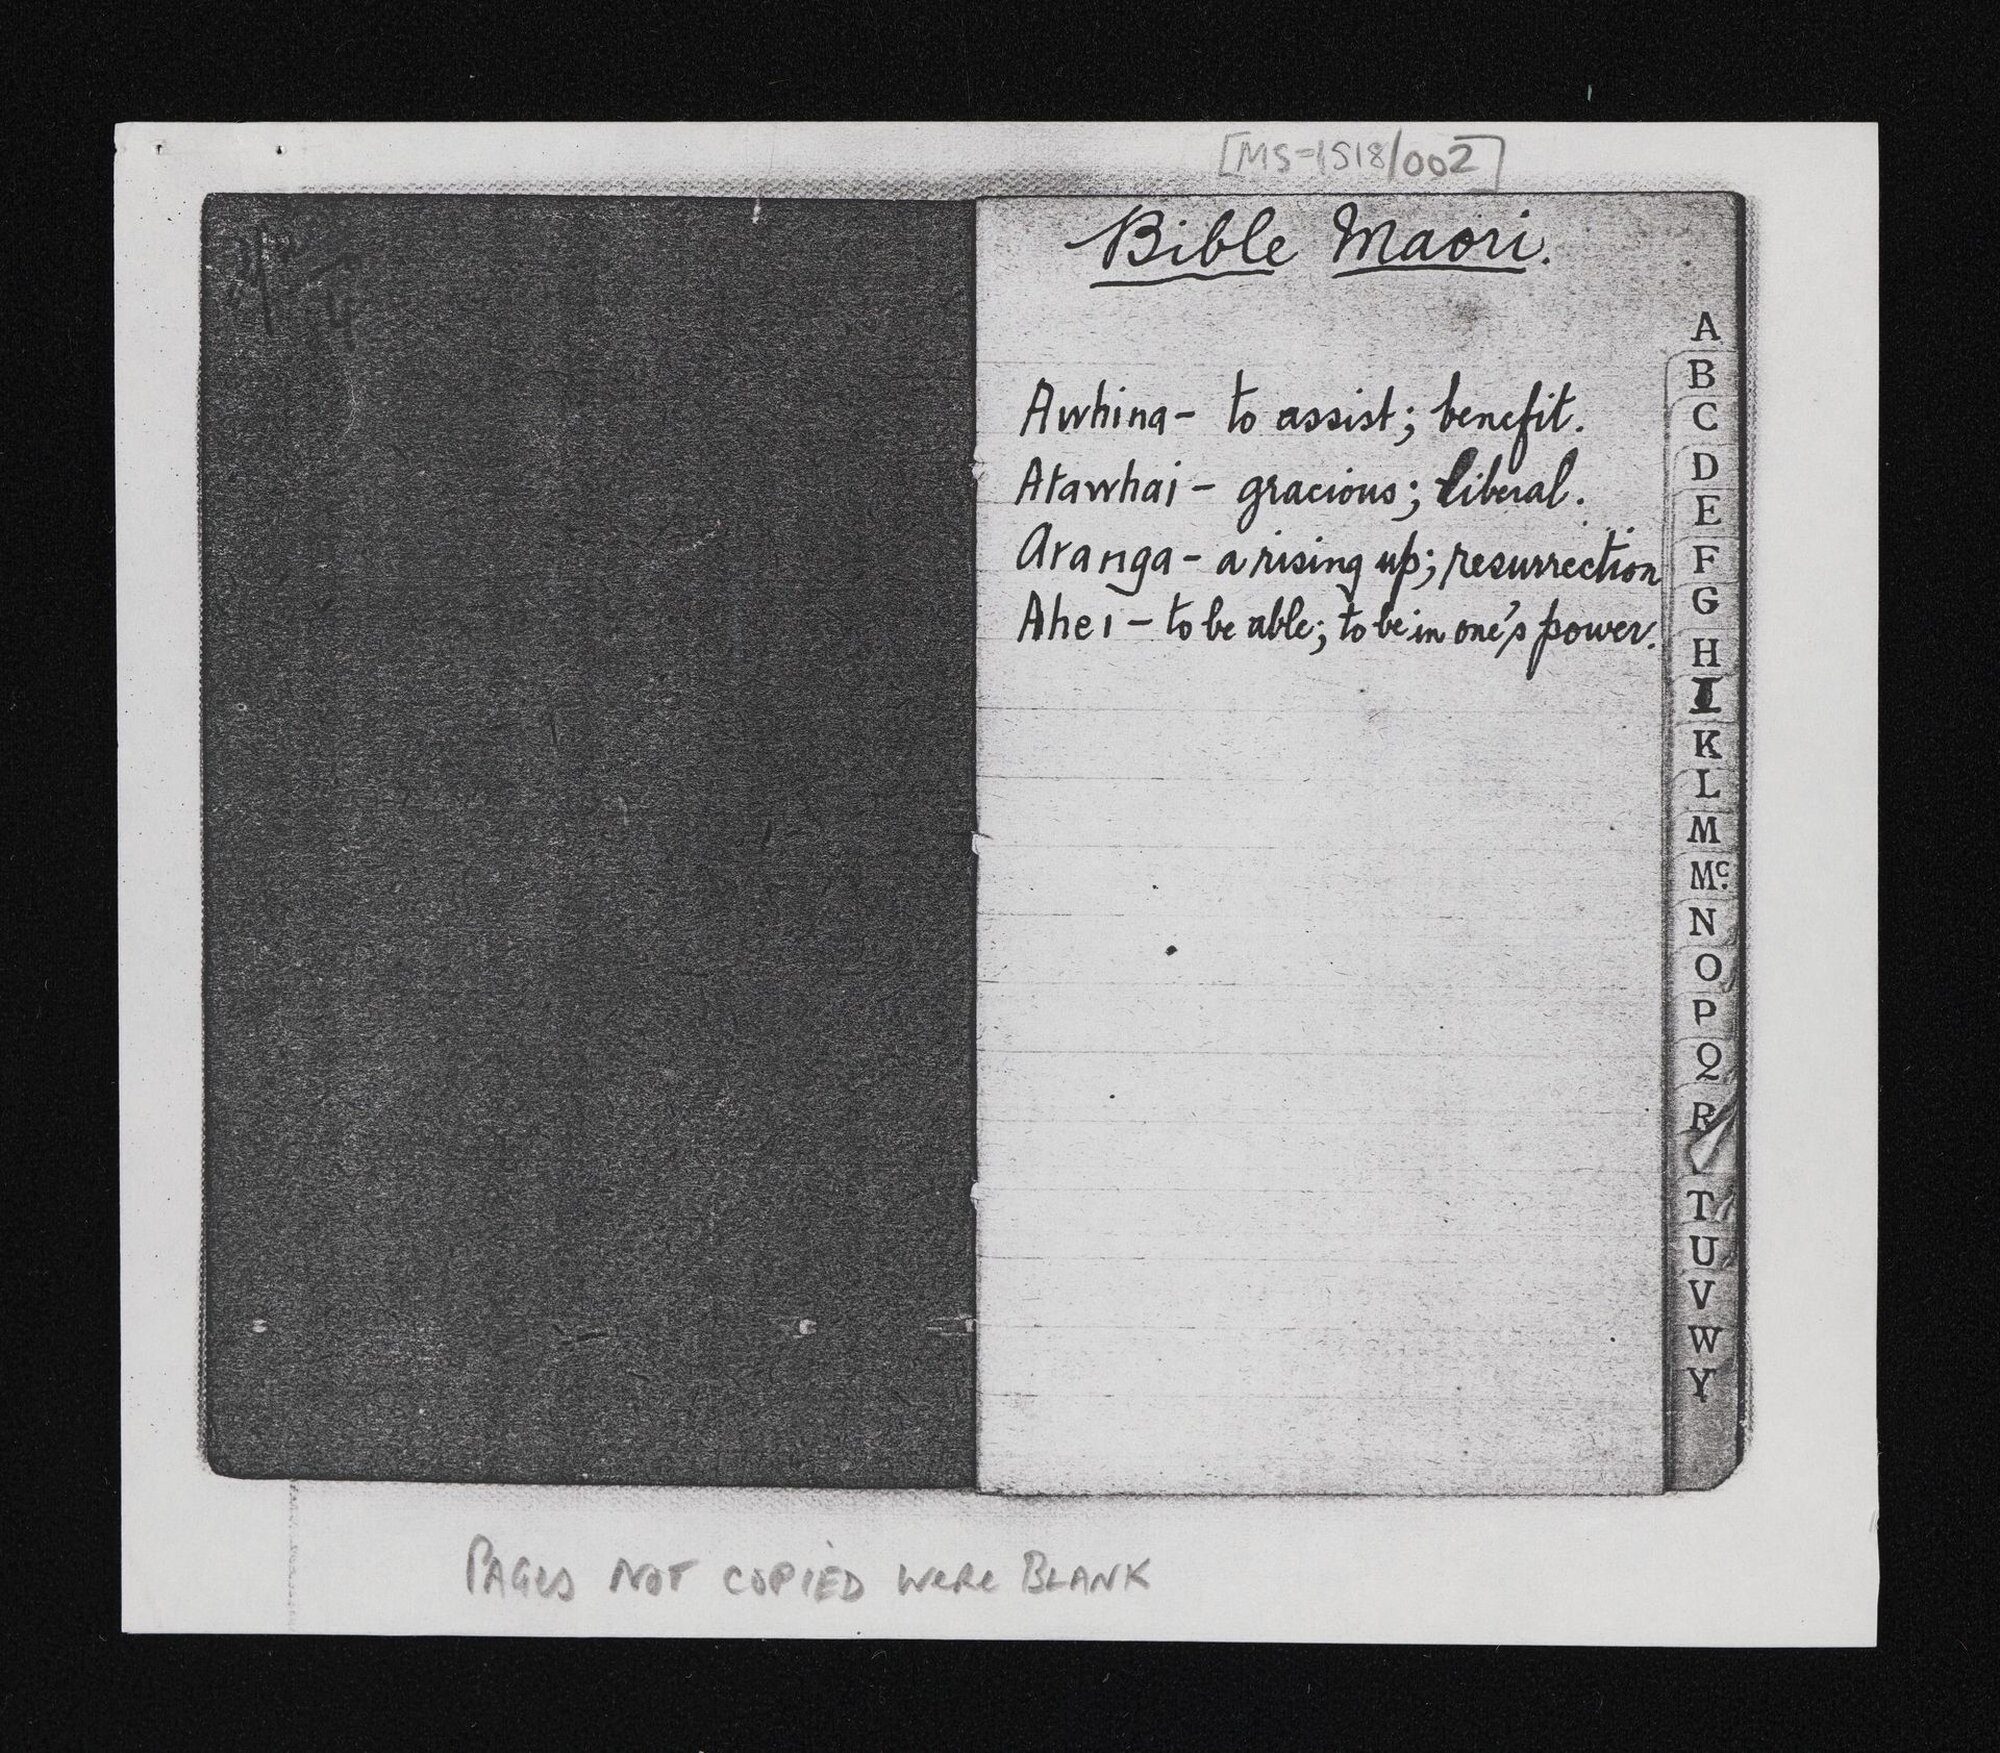 [MS-1518/002]
Bible Maori.
Awhina - to assist; benefit.
Atawhai - gracious; liberal.
Aranga - a rising up; resurrection
Ahei - to be able; to be in one's power.
A
B
C
D
E
F
G
H
I
K
L
M
Mc.
N
O
P
Q
R
T
U
V
W
Y
PAGES NOT COPIED WERE BLANK